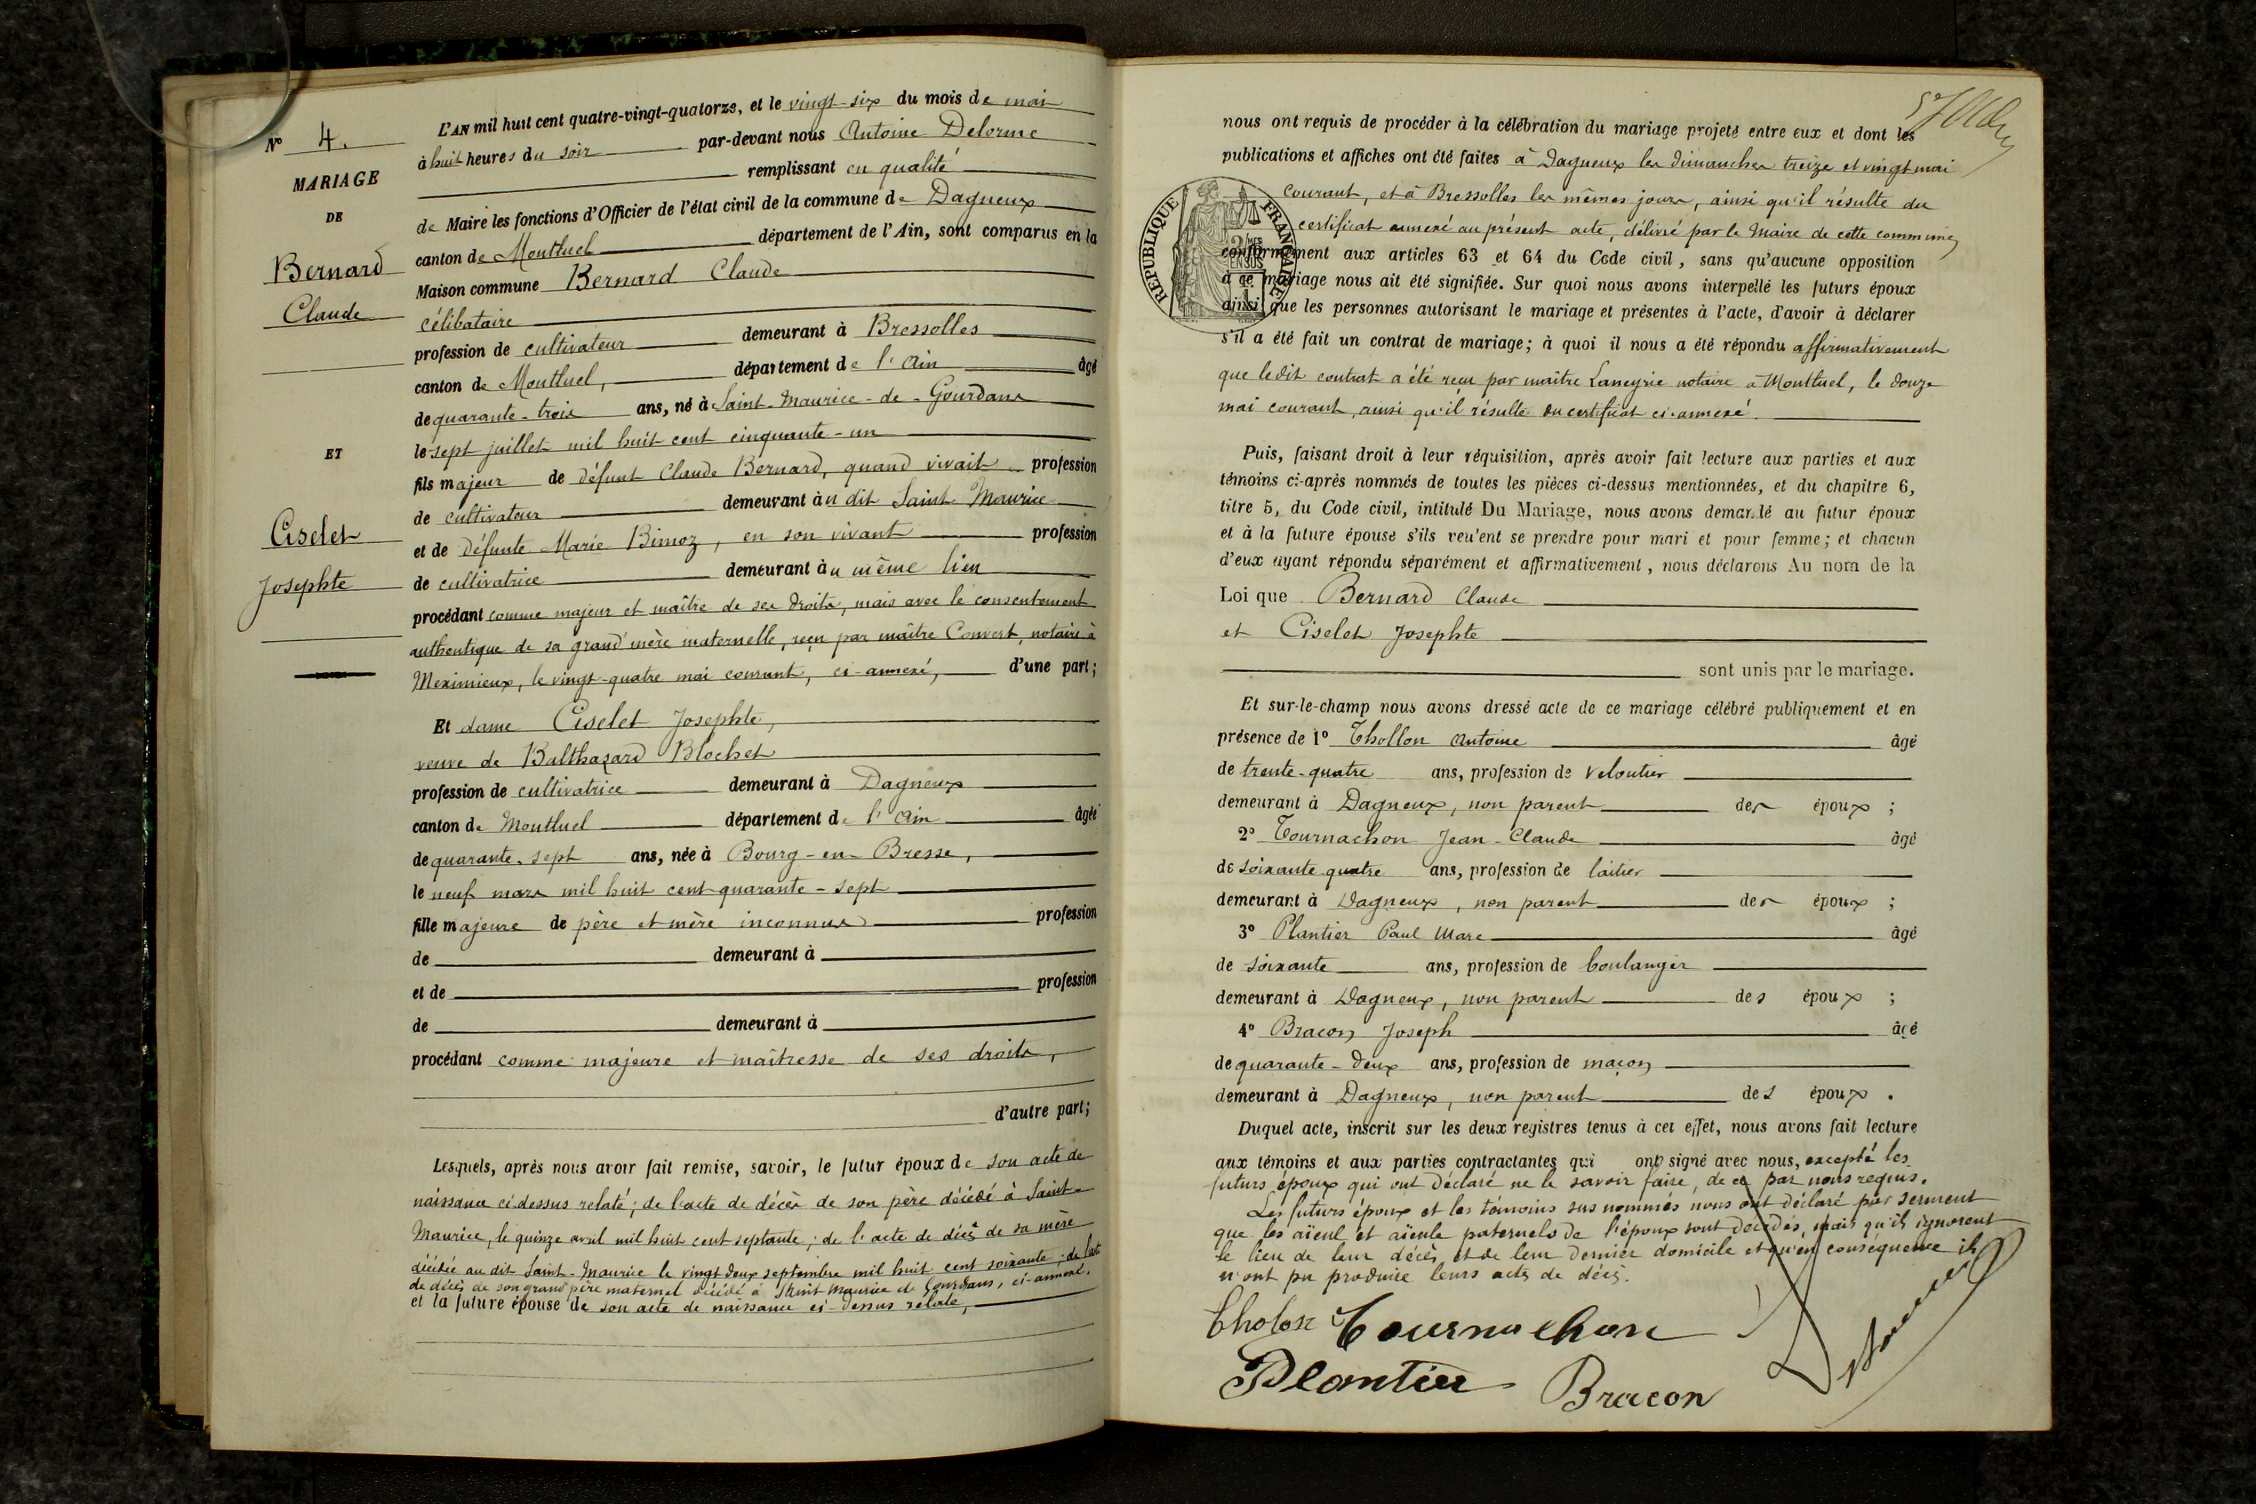 N° 4.
MARIAGE
DE
Bernard
Claude
ET
Ciselet
Josephte
L'AN mil huit cent quatre-vingt-quatorze, et le vingt-six du mois de mai
à huit heures du soir par-devant nous Antoine Delorme
remplissant en qualité
de Maire les fonctions d'Officier de l'état civil de la commune de Dagneux
canton de Montluel département de l'Ain, sont comparus en la
Maison commune Bernard Claude
célibataire
profession de cultivateur demeurant à Bressolles
canton de Montluel, département de l'Ain âgé
de quarante-trois ans, né à Saint-Maurice-de-Gourdans
le sept juillet mil huit cent cinquante-un
fils majeur de défunt Claude Bernard, quand vivait profession
de cultivateur demeurant àu dit Saint Maurice
et de défunte Marie Bimoz, en son vivant profession
de cultivatrice demeurant àu même lieu
procédant comme majeur et maître de ses droits, mais avec le consentement
authentique de sa grand'mère maternelle, reçu par maître Convert, notaire à
Meximieux, le vingt-quatre mai courant, ci-annexé, d'une part;
Et dame Ciselet Josephte,
veuve de Balthazard Blochet
profession de cultivatrice demeurant à Dagneux
canton de Montluel département de l'Ain âgée
de quarante-sept ans, née à Bourg-en-Bresse,
le neuf mars mil huit cent quarante-sept
fille majeure de père et mère inconnus profession
de demeurant à
et de profession
de demeurant à
procédant comme majeure et maîtresse de ses droits,
d'autre part;
Lesquels, après nous avoir fait remise, savoir, le futur époux de son acte de
naissance ci-dessus relaté; de l'acte de décès de son père décédé à Saint-
Maurice, le quinze avril mil huit cent septante; de l'acte de décès de sa mère
décédée au dit Saint-Maurice le vingt deux septembre mil huit cent soixante; de l'acte
de décès de son grand père maternel décédé à Saint Maurice de Gourdans, ci-annexé.
et la future épouse de son acte de naissance ci-dessus relaté,
nous ont requis de procéder à la célébration du mariage projeté entre eux et dont les
publications et affiches ont été faites à Dagneux les dimanches treize et vingt mai
courant, et à Bressolles les mêmes jours, ainsi qu'il résulte du
certificat annexé au présent acte, délivré par le Maire de cette commune,
RÉPUBLIQUE FRANÇAISE
conformément aux articles 63 et 64 du Code civil, sans qu'aucune opposition
à ce mariage nous ait été signifiée. Sur quoi nous avons interpellé les futurs époux
ainsi que les personnes autorisant le mariage et présentes à l'acte, d'avoir à déclarer
s'il a été fait un contrat de mariage; à quoi il nous a été répondu affirmativement
que ledit contrat a été reçu par maître Laneyrie notaire à Montluel, le douze
mai courant, ainsi qu'il résulte du certificat ci-annexé.
Puis, faisant droit à leur réquisition, après avoir fait lecture aux parties et aux
témoins ci-après nommés de toutes les pièces ci-dessus mentionnées, et du chapitre 6,
titre 5, du Code civil, intitulé Du Mariage, nous avons demandé au futur époux
et à la future épouse s'ils veulent se prendre pour mari et pour femme; et chacun
d'eux ayant répondu séparément et affirmativement, nous déclarons Au nom de la
Loi que Bernard Claude
et Ciselet Josephte
sont unis par le mariage.
Et sur-le-champ nous avons dressé acte de ce mariage célébré publiquement et en
présence de 1° Thollon Antoine âgé
de trente-quatre ans, profession de veloutier
demeurant à Dagneux, non parent des époux;
2° Tournachon Jean-Claude âgé
de soixante quatre ans, profession de laitier
demeurant à Dagneux, non parent des époux;
3° Plantier Paul Marc âgé
de soixante ans, profession de boulanger
demeurant à Dagneux, non parent des époux;
4° Bracon Joseph âgé
de quarante-deux ans, profession de maçon
demeurant à Dagneux, non parent des époux.
Duquel acte, inscrit sur les deux registres tenus à cet effet, nous avons fait lecture
aux témoins et aux parties contractantes qui ont signé avec nous, excepté les
futurs époux qui ont déclaré ne le savoir faire, de ce par nous requis.
Les futurs époux et les témoins sus nommés nous ont déclaré par serment
que les aïeul et aïeule paternels de l'époux sont décédés, mais qu'ils ignorent
le lieu de leur décès et de leur dernier domicile et qu'en conséquence ils
n'ont pu produire leurs actes de décès.
Tholon Tournachon
Plantier Bracon
Delorme